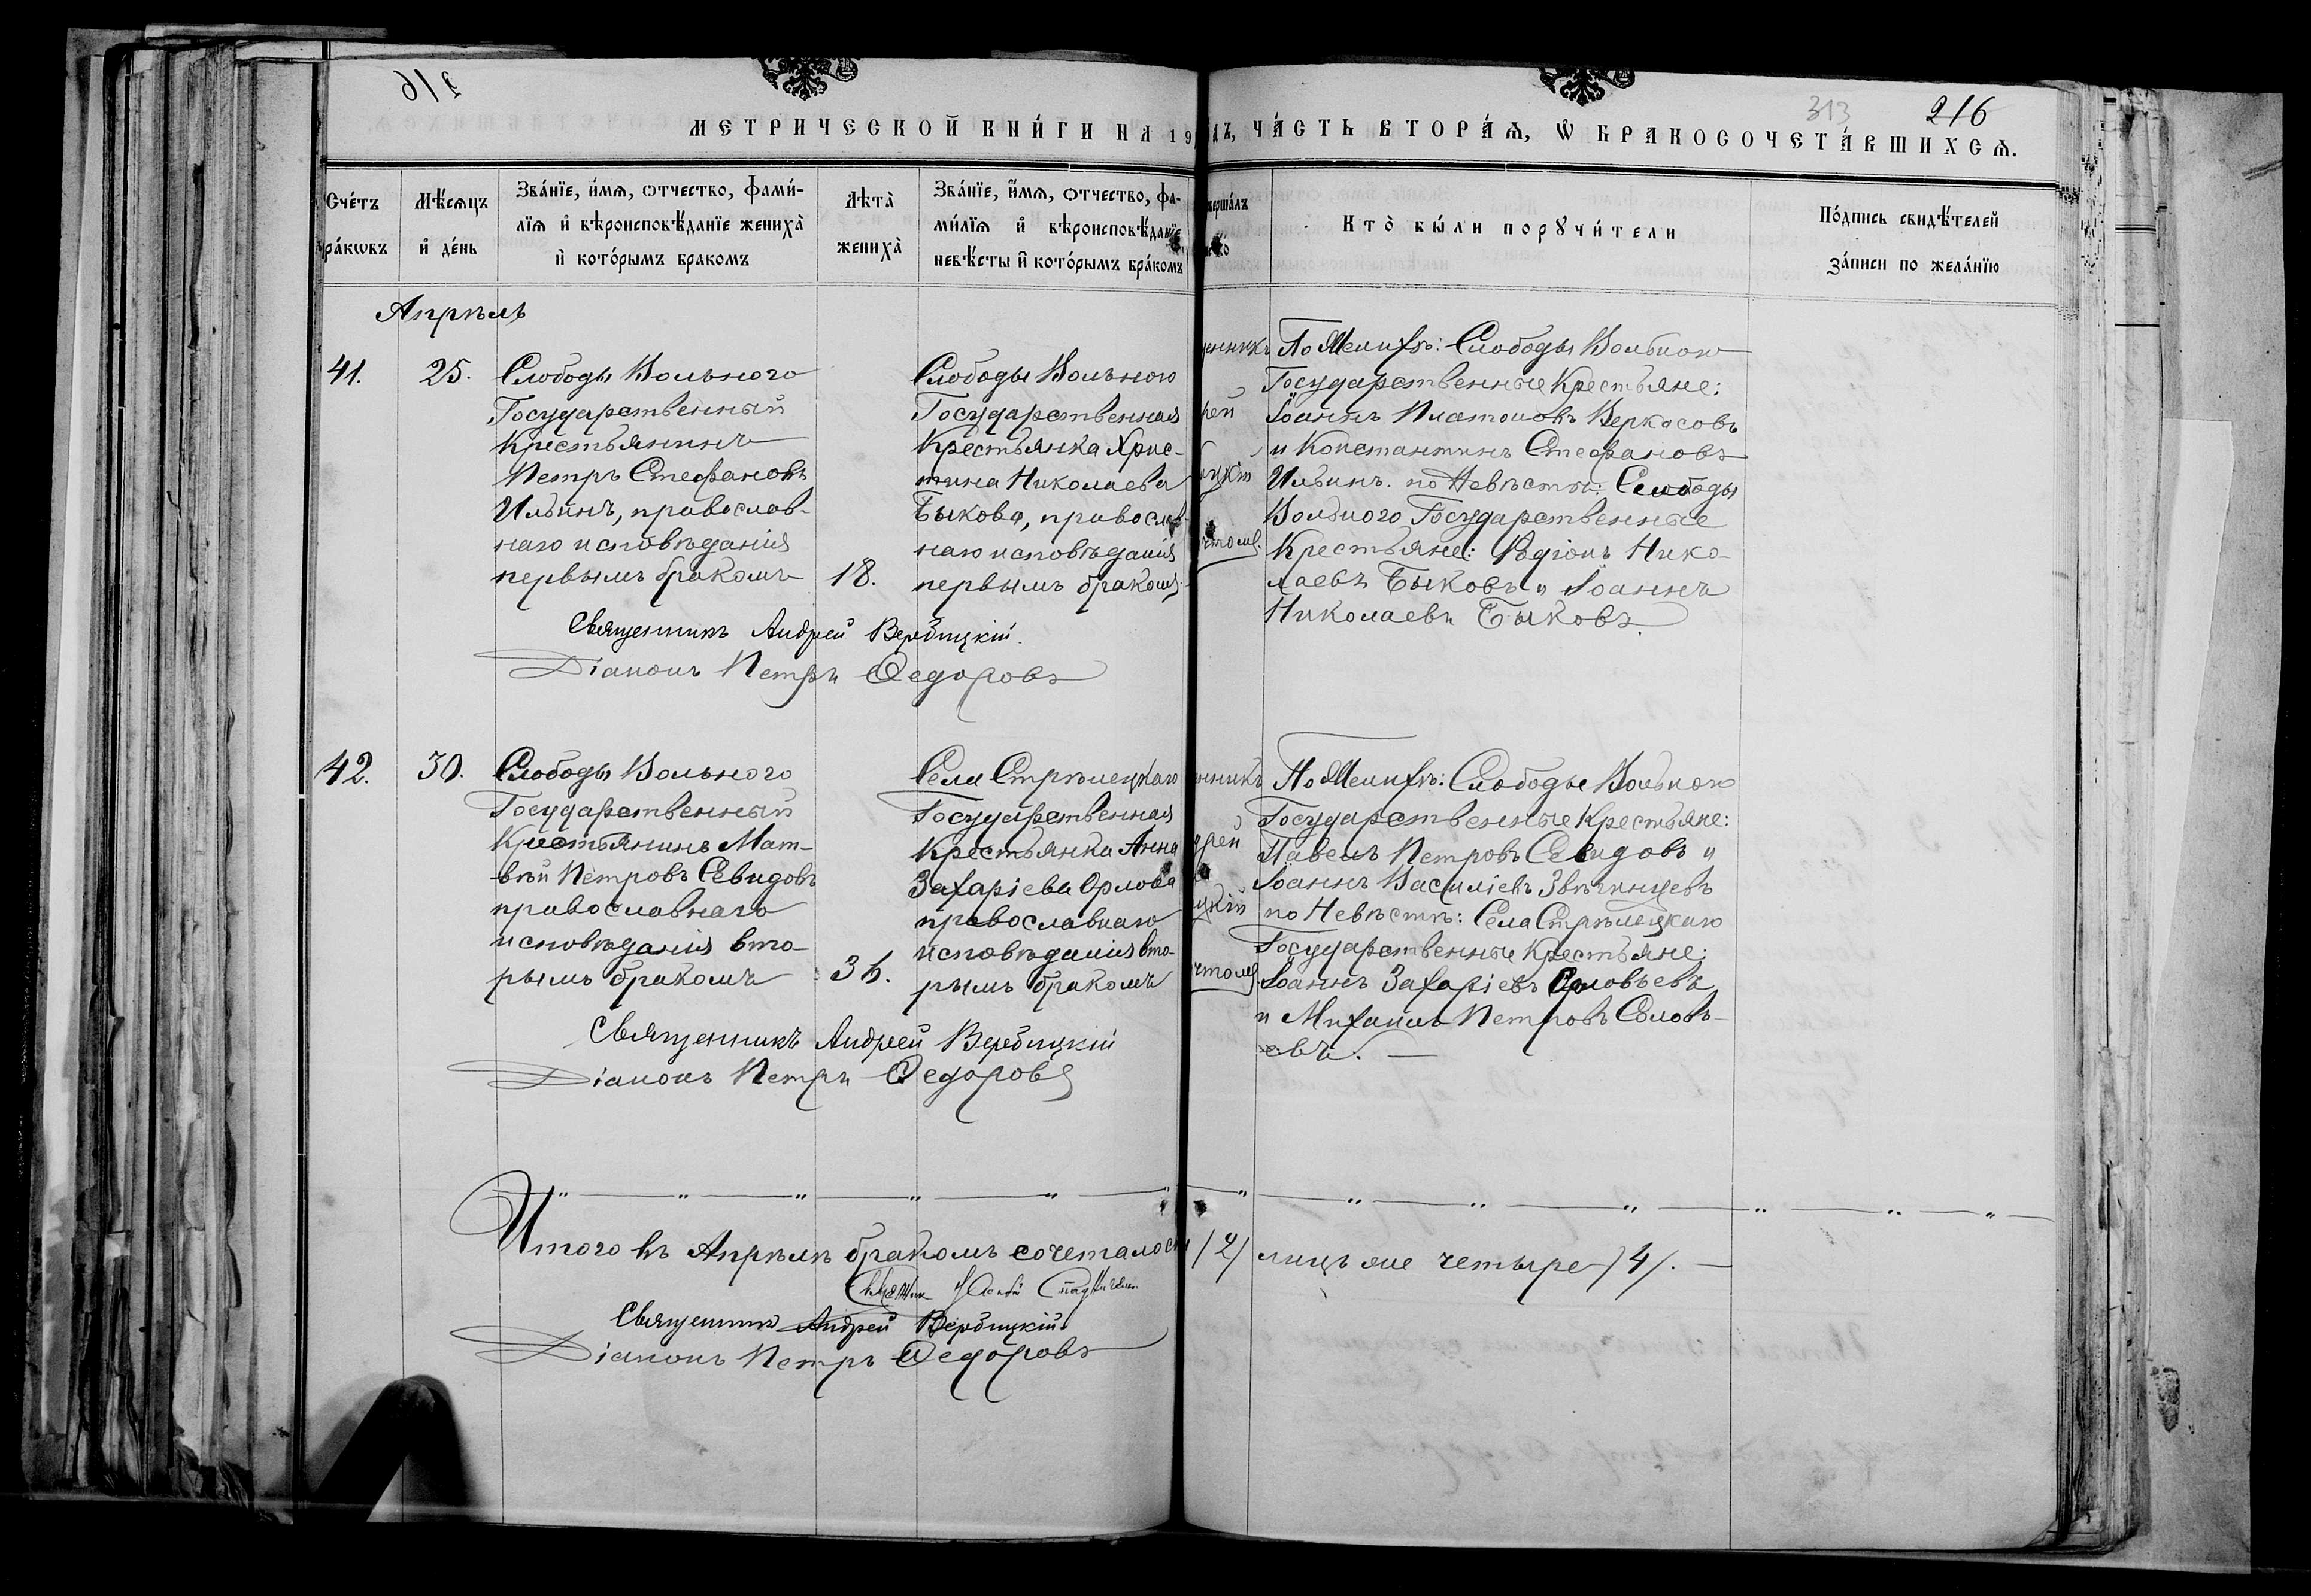 313
216
МЕТРИЧЕСКОЙ КНИ́ГИ НА 19
ДЪ, ЧА́СТЬ ВТОРА́Ѧ, Ѡ БРАКОСОЧЕТА́ВШИХСѦ.
Сче́тъ
ра́кѡвъ
Мѣ́сѧцъ
и҆ де́нь
Зва́нїе, и҆́мѧ, ѻтчество, фами́-
лїѧ и҆ вѣроисповѣ́данїе жениха̀
и҆ кото́рымъ бракомъ
Лѣта̀
жениха̀
Зва́нїе, и҆́мѧ, ѻтчество, фа-
ми́лїѧ и҆ вѣроисповѣ́данїе
невѣ́сты и҆ кото́рымъ бра́комъ
верша́лъ
Кто̀ бы́ли порꙋчи́тели
По́дпись свидѣ́телей
за́писи по жела́нїю
Апрѣль
41.
25.
Слободы Вольного
Государственный
Крестьянинъ
Петръ Стефановъ
Ильинъ, православ-
наго исповѣданія
первымъ бракомъ
18.
Слободы Вольного
Государственная
Крестьянка Хрис-
тина Николаева
Быкова, православ-
наго исповѣданія
первымъ бракомъ
По Женихѣ: Слободы Вольного
Государственные Крестьяне:
Іоаннъ Платоновъ Веркосовъ
и Константинъ Стефановъ
Ильинъ. по Невѣстѣ: Слободы
Вольного Государственные
Крестьяне: Родіонъ Нико-
лаевъ Быковъ и Іоаннъ
Николаевъ Быковъ.
Священникъ Андрей Вербицкій.
Діаконъ Петръ Ѳедоровъ
42.
30.
Слободы Вольного
Государственный
Крестьянинъ Мат-
вѣй Петровъ Севидовъ
православнаго
исповѣданія вто-
рымъ бракомъ
Села Стрѣлецкаго
Государственная
Крестьянка Анна
Захаріева Орлова
православнаго
исповѣданія вто-
рымъ бракомъ
По Женихѣ: Слободы Вольного
Государственные Крестьяне:
Павелъ Петровъ Севидовъ и
Іоаннъ Василіевъ Звѣгинцевъ
по Невѣстѣ: Села Стрѣлецкаго
Государственные Крестьяне:
Іоаннъ Захаріевъ
и Михаилъ Петровъ Соловь-
евъ.
Священникъ Андрей Вербицкій
Діаконъ Петръ Ѳедоровъ
Итого въ Апрѣлѣ бракомъ сочеталось /2/ лицъ же четыре /4/.
Священникъ Андрей Вербицкій
Діаконъ Петръ Ѳедоровъ